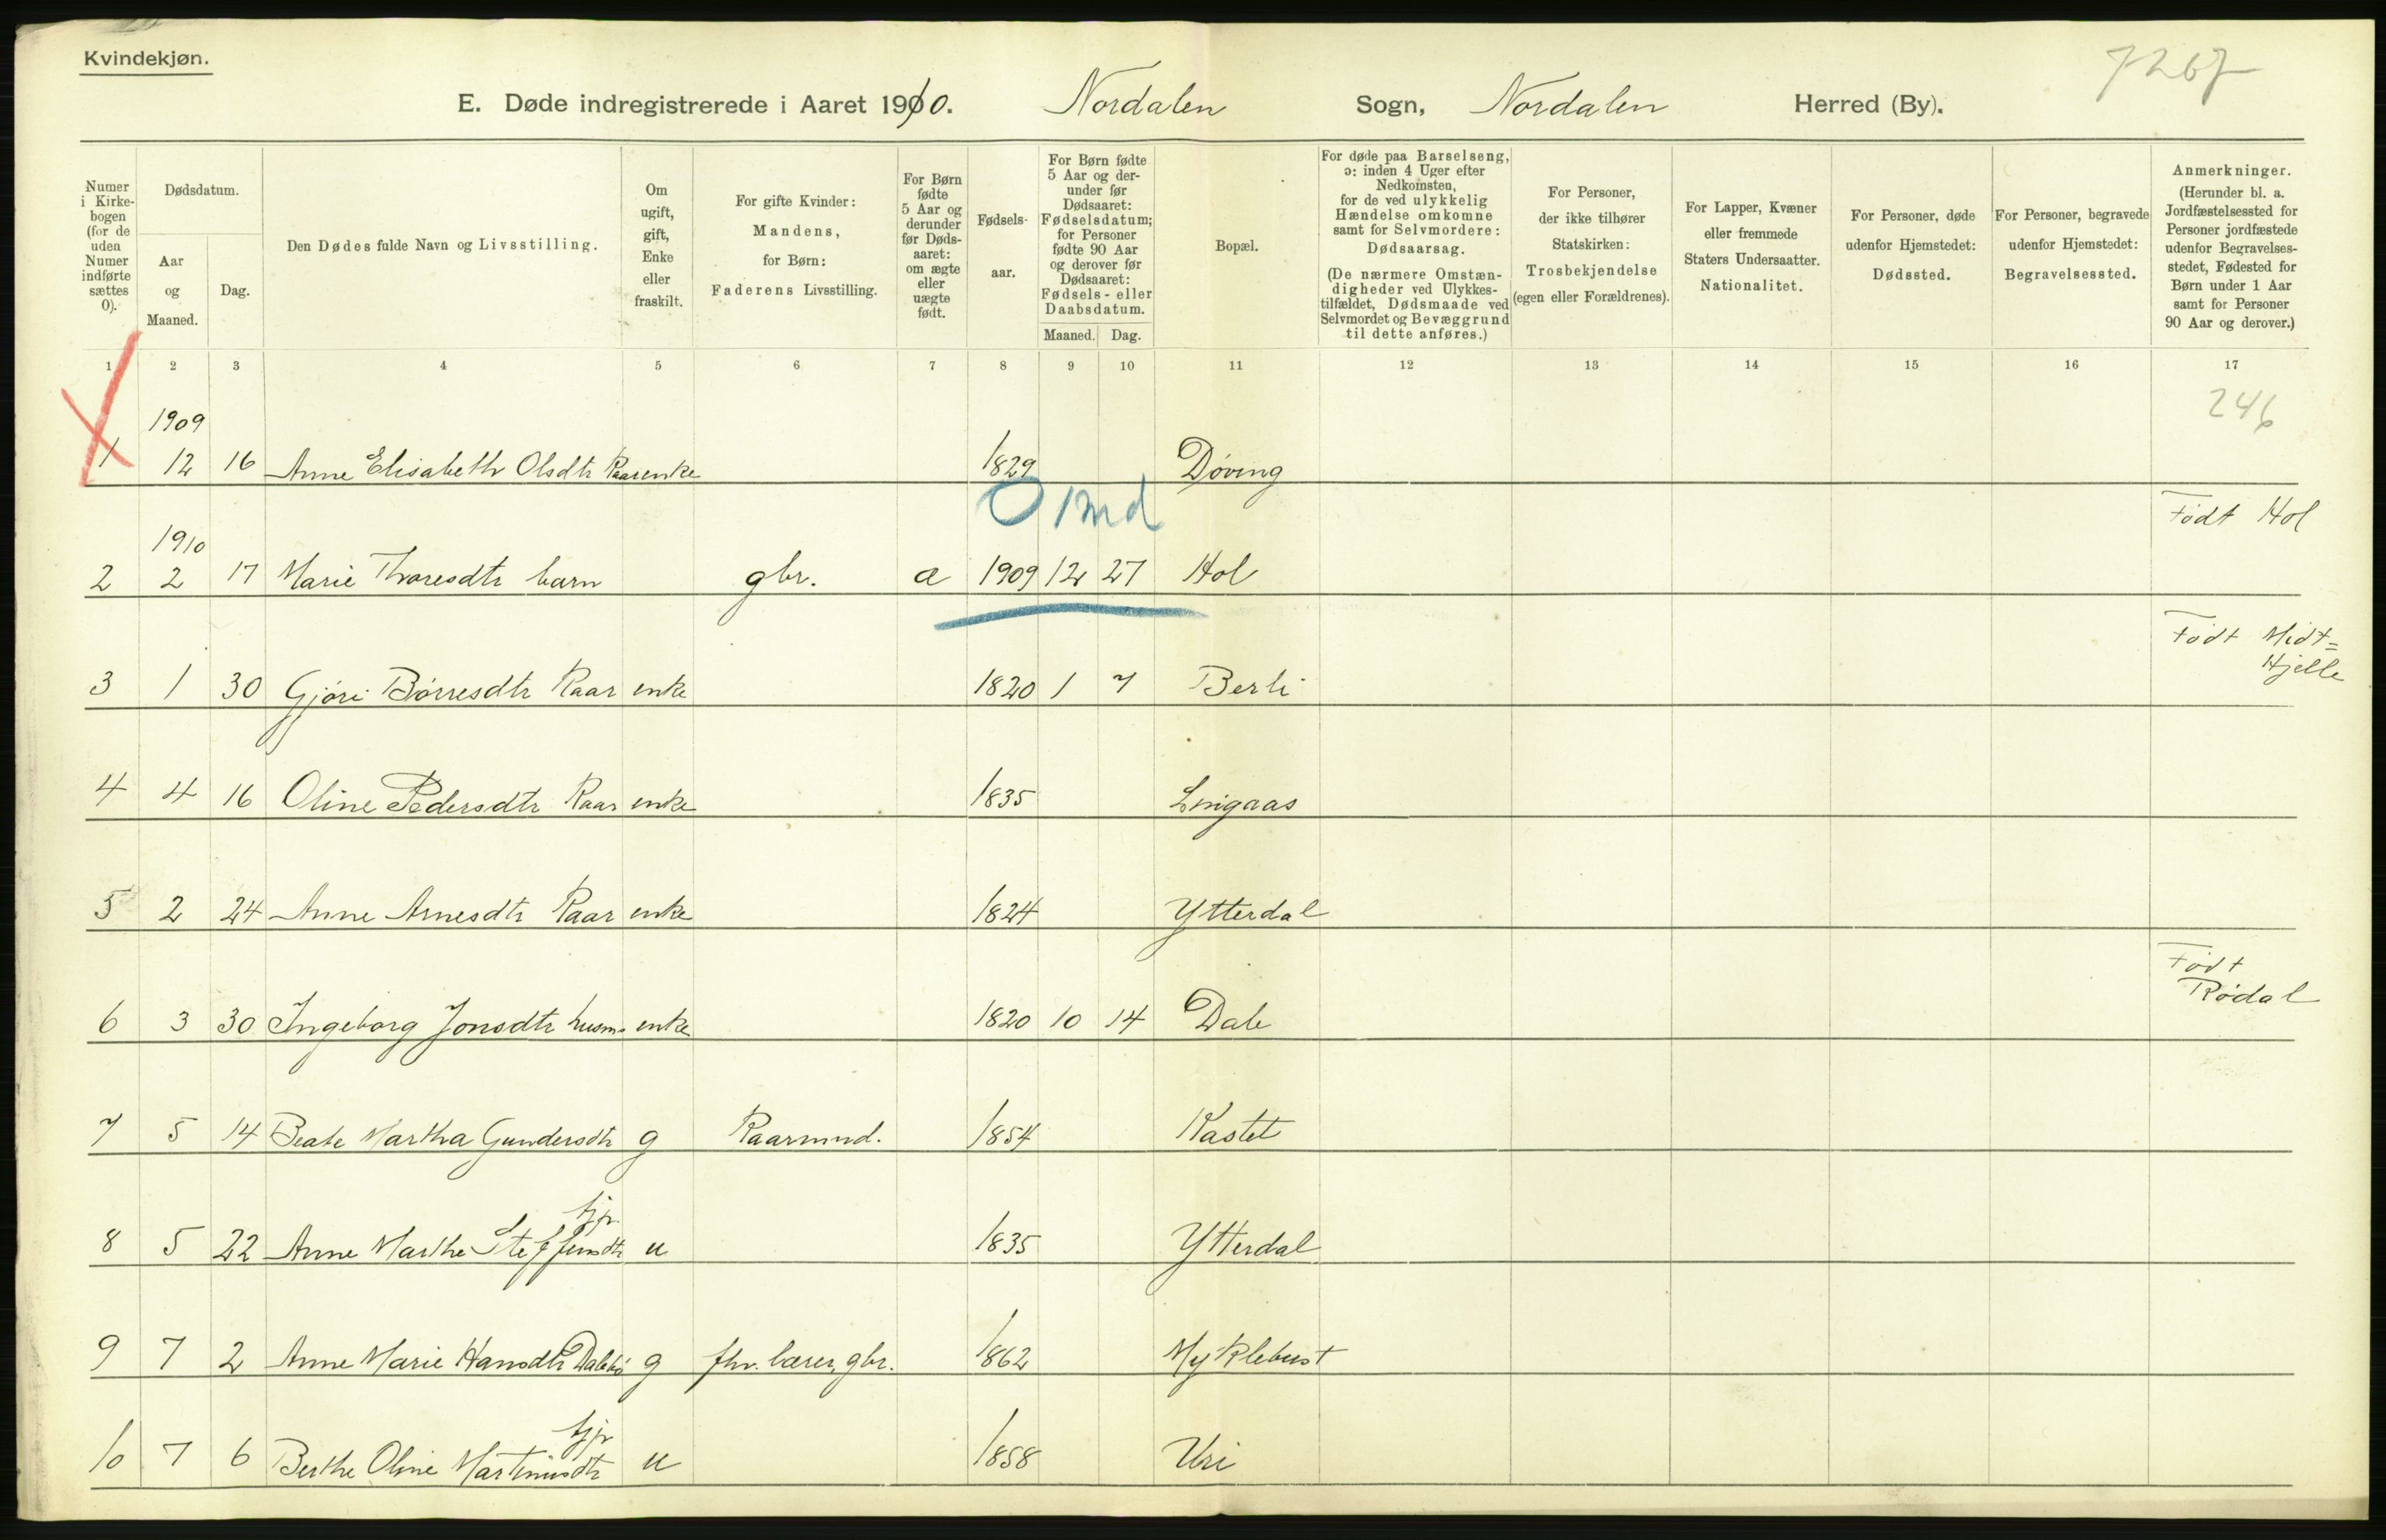 Kvindekjøn.
7267
E. Døde indregistrerede i Aaret 1910. Nordalen Sogn, Nordalen Herred (By).
Numer i Kirkebogen (for de uden Numer indførte sættes 0).
Dødsdatum.
Aar og Maaned.
Dag.
Den Dødes fulde Navn og Livsstilling.
Om ugift, gift, Enke eller fraskilt.
For gifte Kvinder: Mandens, for Børn: Faderens Livsstilling.
For Børn fødte 5 Aar og derunder før Dødsaaret: om ægte eller uægte født.
Fødselsaar.
For Børn fødte 5 Aar og derunder før Dødsaaret: Fødselsdatum; for Personer fødte 90 Aar og derover før Dødsaaret: Fødsels- eller Daabsdatum.
Maaned. Dag.
Bopæl.
For døde paa Barselseng, ɔ: inden 4 Uger efter Nedkomsten, for de ved ulykkelig Hændelse omkomne samt for Selvmordere: Dødsaarsag.
(De nærmere Omstændigheder ved Ulykkestilfældet, Dødsmaade ved Selvmordet og Bevæggrund til dette anføres.)
For Personer, der ikke tilhører Statskirken: Trosbekjendelse (egen eller Forældrenes).
For Lapper, Kvæner eller fremmede Staters Undersaatter. Nationalitet.
For Personer, døde udenfor Hjemstedet: Dødssted.
For Personer, begravede udenfor Hjemstedet: Begravelsessted.
Anmerkninger. (Herunder bl. a. Jordfæstelsessted for Personer jordfæstede udenfor Begravelsesstedet, Fødested for Børn under 1 Aar samt for Personer 90 Aar og derover.)
1 2 3 4 5 6 7 8 9 10 11 12 13 14 15 16 17
246
1909
1 12 16 Anne Elisabeth Olsdtr Kaar enke 1829 Døving
0 1 md
Født Hol
1910
2 2 17 Marie Thoresdtr barn gbr. a 1909 12 27 Hol
Født Midt=
Hjelle
3 1 30 Gjøri Børresdtr Kaar enke 1820 1 7 Berli
4 4 16 Oline Pedersdtr Kaar enke 1835 Lingaas
5 2 24 Anne Arnesdtr Kaar enke 1824 Ytterdal
Født
Rødal
6 3 30 Ingeborg Jonsdtr husm. enke 1820 10 14 Dale
7 5 14 Beate Martha Gundersdtr g Kaarmnd. 1854 Kastet
tjp.
8 5 22 Anne Marthe Steffensdtr u 1835 Ytterdal
9 7 2 Anne Marie Hansdtr Dalebø g fhv. lærer, gbr. 1862 Myklebust
tjp.
10 7 6 Berthe Oline Martinusdtr u 1858 Uri